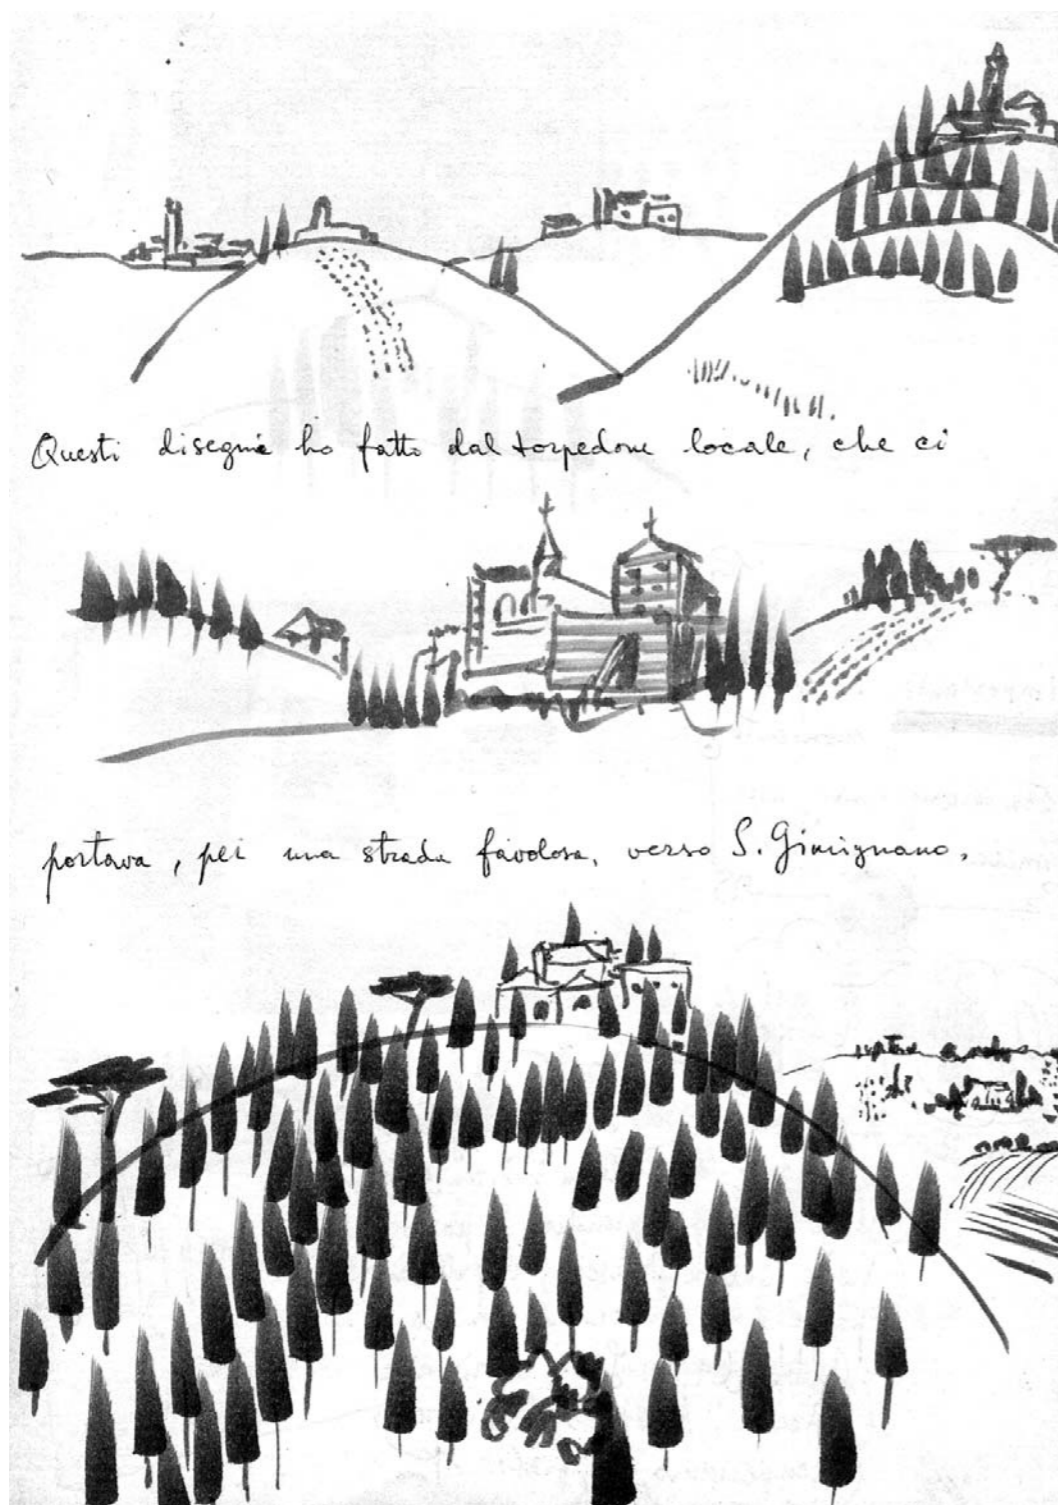 Questi disegni ho fatto dal torpedone locale, che ci
portava, per una strada favolosa, verso S. Gimignano.